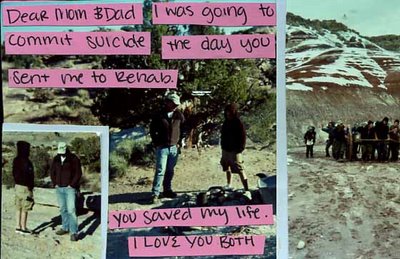 Dear Mom & Dad I was going to
commit suicide the day you
sent me to Rehab.
you saved my life.
I LOVE YOU BOTH